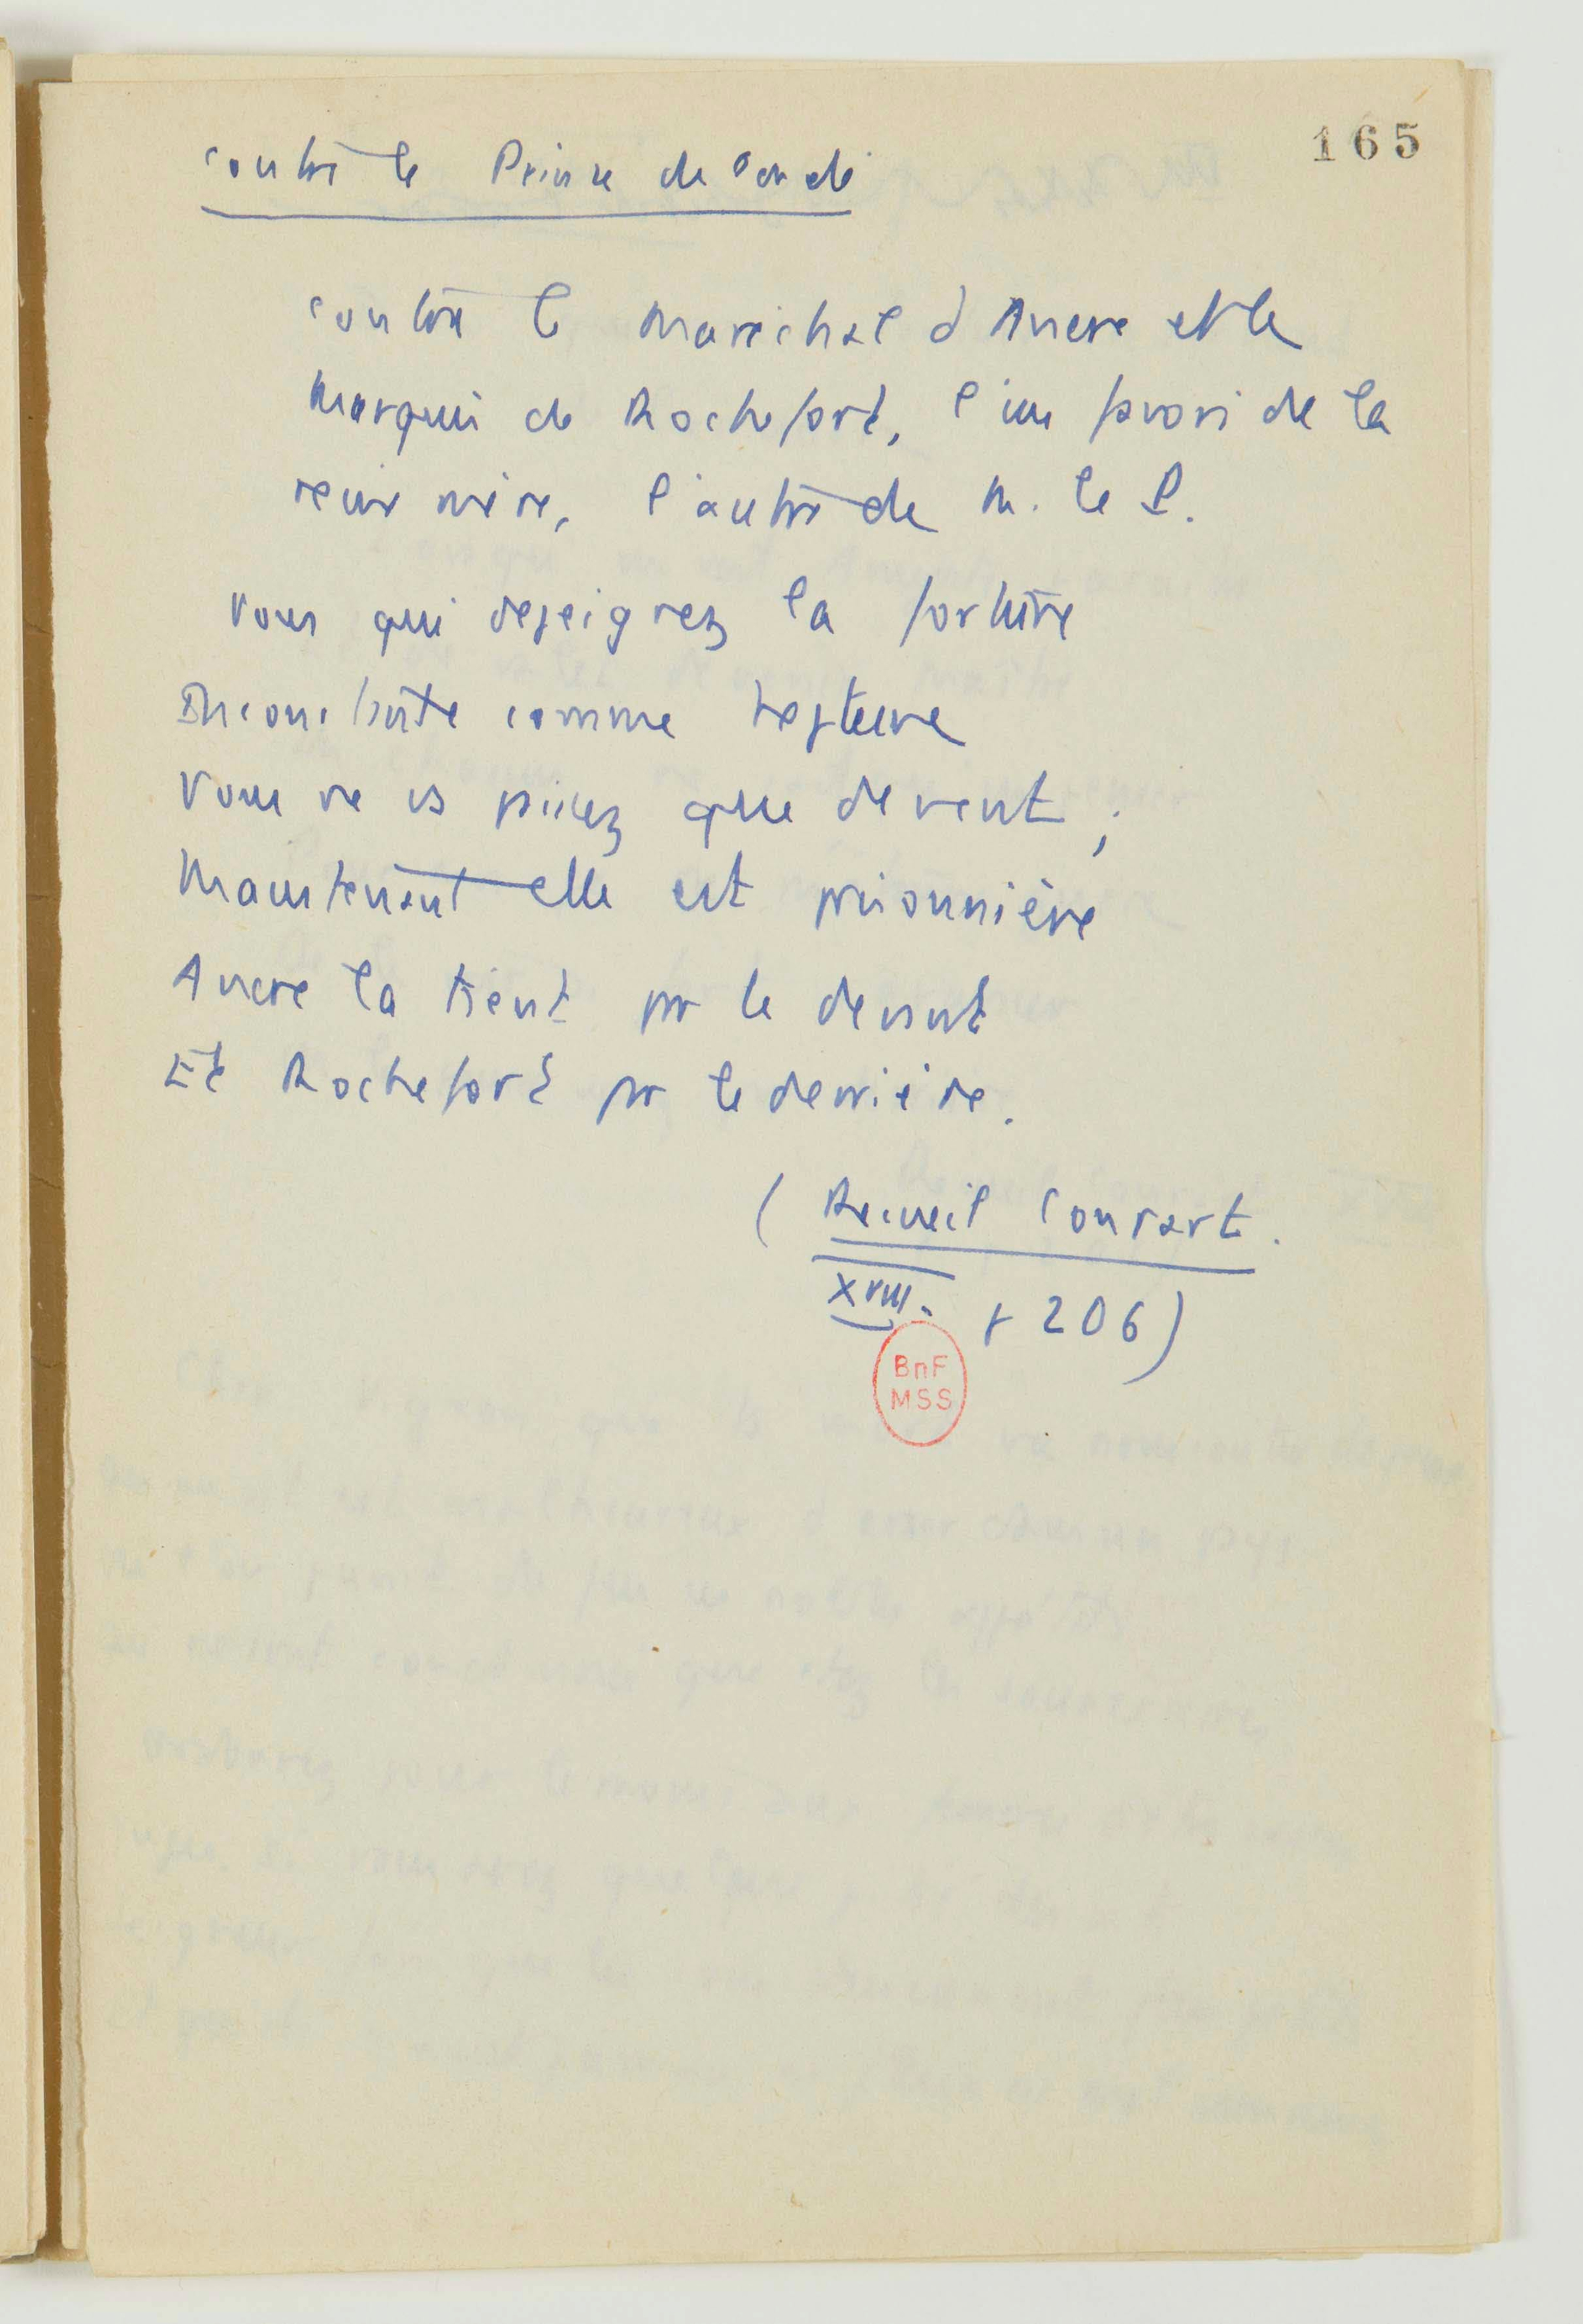 165
contre le Prince de Condé
contre le Maréchal d'Ancre et le
Marquis de Rochefort, l'un favori de la
reine mère, l'autre de M. le P.
Vous qui depeignez la fortune
Inconstante comme Neptune
Vous ne us piuez que de vent ;
Maintenant elle est prisonnière
Ancre la tient par le devant
Et Rochefort par le derrière.
( Recueil Conrart.
XVIII. f 206)
BnF
MSS